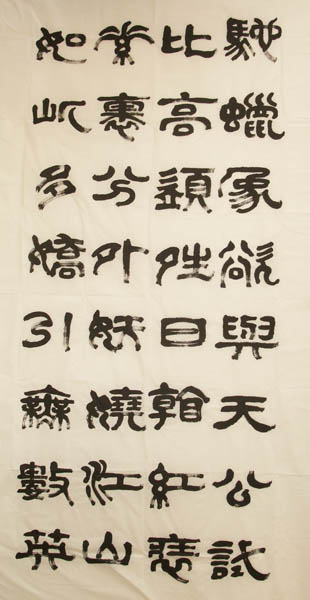 馳蠟象欲與天公試
比高須晴日看紅裝
素裹分外妖嬈江山
如此多嬌引無數英